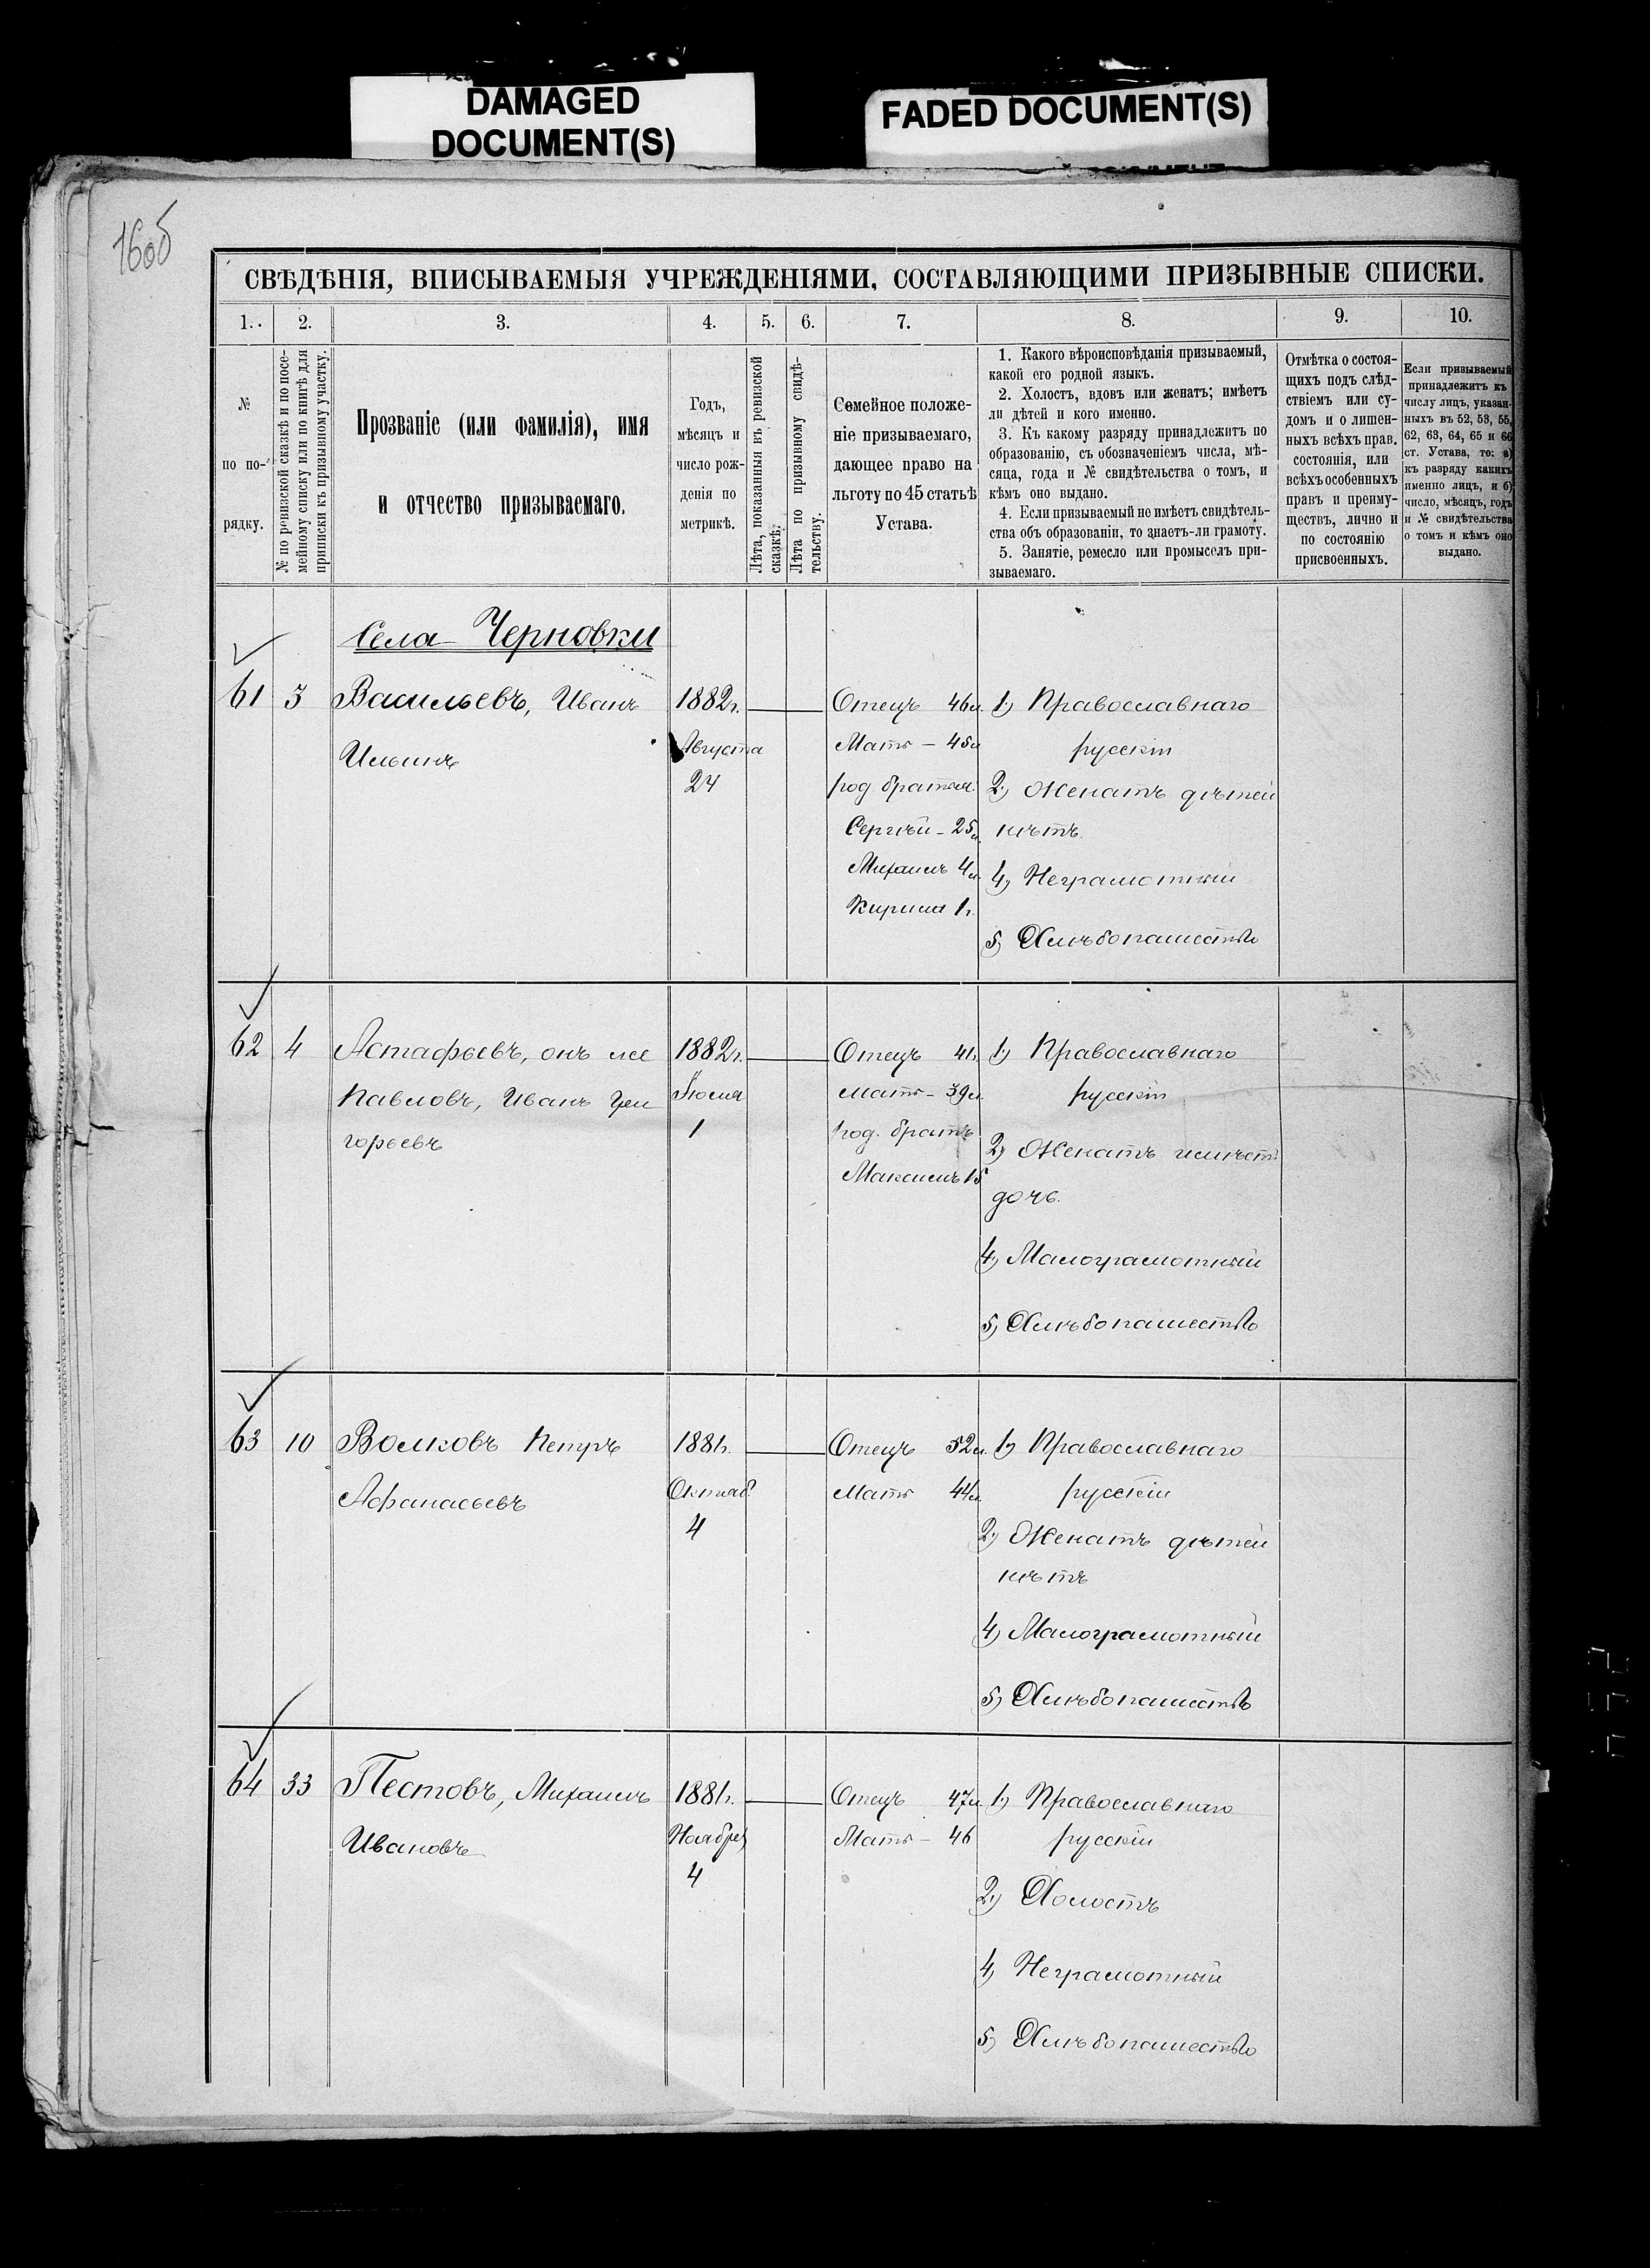 DAMAGED
DOCUMENT(S)
FADED DOCUMENT(S)
16об
СВѢДѢНІЯ, ВПИСЫВАЕМЫЯ УЧРЕЖДЕНІЯМИ, СОСТАВЛЯЮЩИМИ ПРИЗЫВНЫЕ СПИСКИ.
1. 2. 3. 4. 5. 6. 7. 8. 9. 10.
№
по по-
рядку.
№ по ревизской сказкѣ и по посе-
мейному списку или по книгѣ для
приписки къ призывному участку.
Прозваніе (или фамилія), имя
и отчество призываемаго.
Годъ,
мѣсяцъ и
число рож-
денія по
метрикѣ.
Лѣта, показанныя въ ревизской
сказкѣ.
Лѣта по призывному свидѣ-
тельству.
Семейное положе-
ніе призываемаго,
дающее право на
льготу по 45 статьѣ
Устава.
1. Какого вѣроисповѣданія призываемый,
какой его родной языкъ.
2. Холостъ, вдовъ или женатъ; имѣетъ
ли дѣтей и кого именно.
3. Къ какому разряду принадлежитъ по
образованію, съ обозначеніемъ числа, мѣ-
сяца, года и № свидѣтельства о томъ, и
кѣмъ оно выдано.
4. Если призываемый не имѣетъ свидѣтель-
ства объ образованіи, то знаетъ-ли грамоту.
5. Занятіе, ремесло или промыселъ при-
зываемаго.
Отмѣтка о состоя-
щихъ подъ слѣд-
ствіемъ или су-
домъ и о лишен-
ныхъ всѣхъ прав.
состоянія, или
всѣхъ особенныхъ
правъ и преиму-
ществъ, лично и
по состоянію
присвоенныхъ.
Если призываемый
принадлежитъ къ
числу лицъ, указан-
ныхъ въ 52, 53, 55,
62, 63, 64, 65 и 66
ст. Устава, то: а)
къ разряду какихъ
именно лицъ, и б)
число, мѣсяцъ, годъ
и № свидѣтельства
о томъ и кѣмъ оно
выдано.
Села Черновки
61 3 Васильевъ, Иванъ
Ильинъ
1882г.
Августа
24
Отецъ 46л.
Мать – 45л
род братья:
Сергѣй – 25л.
Михаилъ 4л.
Кирила 1г.
1) Православнаго
русскій
2) Женатъ дѣтей
нѣтъ.
4) Неграмотный
5) Хлѣбопашество
62 4 Астафьевъ, онъ же
Павловъ, Иванъ Гри
горьевъ
1882г.
Іюля
1
Отецъ 41г.
Мать – 39л.
род. братъ
Максимъ 15
1) Православнаго
русскій
2) Женатъ имѣетъ
дочь.
4) Малограмотный
5) Хлѣбопашество
63 10 Волковъ Петръ
Афанасьевъ
1881г.
Октяб.
4
Отецъ 52л.
Мать 44л.
1) Православнаго
русскій
2) Женатъ дѣтей
нѣтъ
4) Малограмотный
5) Хлѣбопашество
64 33 Пестовъ, Михаилъ
Ивановъ
1881г.
Ноября
4
Отецъ 47л.
Мать – 46
1) Православнаго
русскій
2) Холостъ
4) Неграмотный
5) Хлѣбопашество